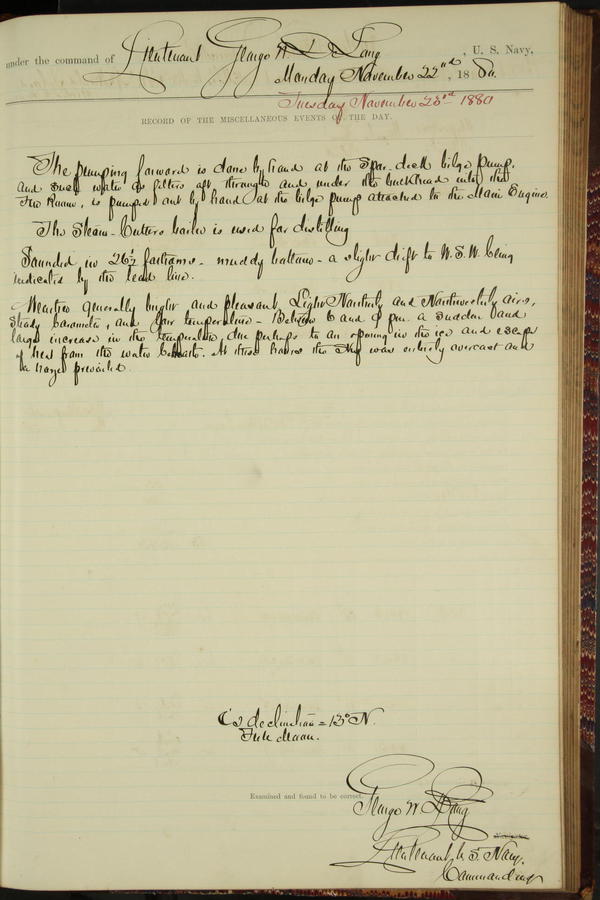 under the command of Lieutenant George W. De Long, U. S. Navy,
Monday November 22nd, 1880.
Tuesday November 23rd 1880
RECORD OF THE MISCELLANEOUS EVENTS OF THE DAY.
The pumping forward is done by hand at the Spar-deck bilge pump,
and such water as filters aft through and under the bulkhead into the
Fire Room, is pumped out by hand at the bilge pump attached to the Main Engine.
The Steam-Cutters boiler is used for distilling
Sounded in 26½ fathoms - muddy bottom - a slight drift to W.S.W. being
indicated by the lead line.
Weather generally bright and pleasant, Light Northerly and Northwesterly airs,
steady barometer, and fair temperature - Between 6 and 9 pm. a sudden and
large increase in the temperature, due perhaps to an opening in the ice and escape
of heat from the water beneath. At these hours the sky was entirely overcast and
a haze prevailed.
☾'s declination = 13° N.
Full Moon.
Examined and found to be correct.
George W. De Long
Lieutenant U.S. Navy.
Commanding